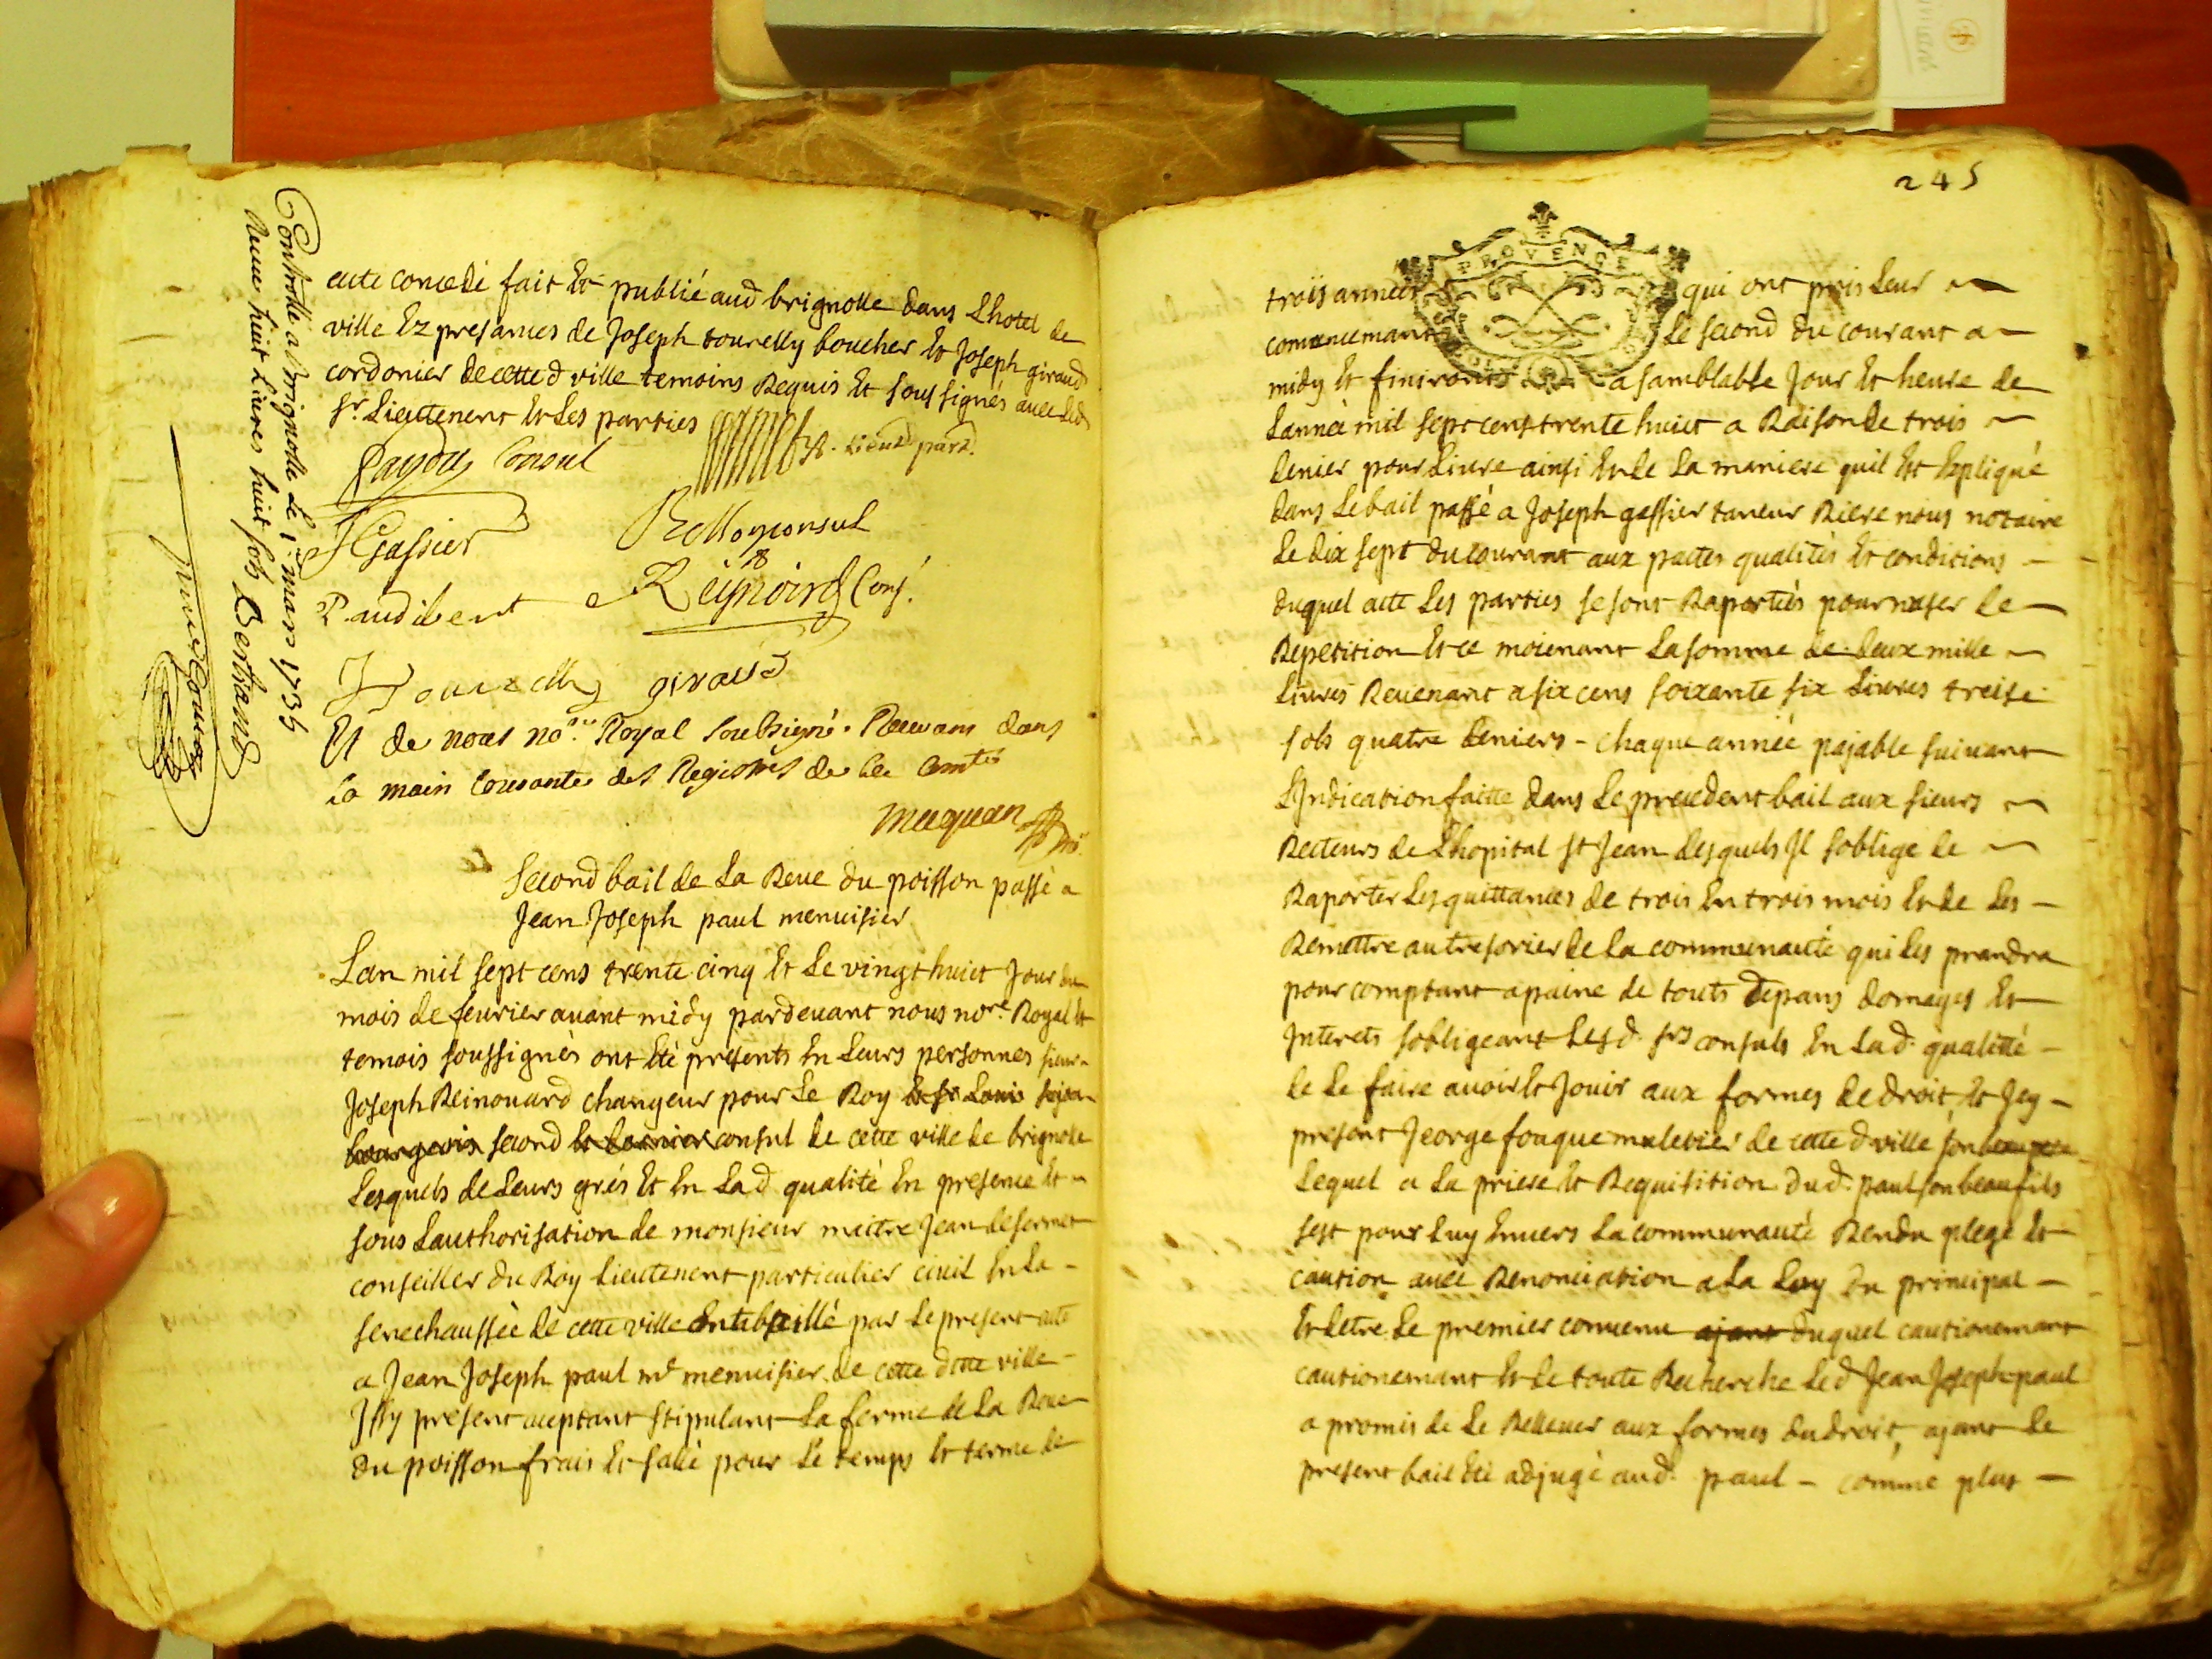 Controllé a Brignolle le 1er mars 1735
Receu huit Livres huit sols Bertrand
acte concedé fait Et publié aud brignolle dans Lhotel de
ville Ez presances de Joseph tourelly boucher Et Joseph giraud
cordonier de cette d ville temoins Requis Et soussignés avec led
sr. Lieutenent Et Les parties
Lieut part.
Consul
JGassier
consul
P. audibert
Reynoird Cons.
Tourelly giraud
Et de nous nore. Royal soubsigné. Recevant dans
la main Courante des Registres de la Comté
Second bail de La Reve du poisson passé a
Jean Joseph paul menuisier
Lan mil sept cens trente cinq Et Le vingt huict Jour du
mois de fevrier avant midy pardevant nous nore. Royal Et
temois soussignés ont Eté presents En Leurs personnes sieur
Joseph Reinouard changeur pour Le Roy Et sr Louis
bourgeois second Et dernier consul de cette ville de brignole
Lesquels de Leurs grés Et En Lad qualité En presence Et
sous Lauthorisation de monsieur maitre Jean desermet
conseiller du Roy Lieutenent particulier civil En La
senechaussée de cette ville ont baillé par Le present acte
a Jean Joseph paul md menuisier de cette ditte ville
Issy present aceptant stipulant La ferme de La Reve
du poisson frais Et salé pour Le temps Et terme de
245
PROVENCE
trois années qui ont pris Leur
comencemant Le second du courant a
midy Et finiront a samblable Jour Et heure de
Lannéé mil sept cens trente huict a Raison de trois
denier pour Livre ainsi En de La maniere quil Est Expliqué
dans Le bail passé a Joseph gassier taneur Riere nous notaire
Le dix sept du courant aux pactes qualités Et conditions
duquel acte Les parties se sont Raportés pour nuser de
Repetition Et ce moienant La somme de deux mille
Livres Revenant a six cens soixante six Livres treise
sols quatre deniers - chaque année pajable suivant
LIndication faitte dans Le precedent bail aux sieurs
Recteurs de Lhopital st Jean desquels Il soblige de
Raporter Les quittances de trois En trois mois Et de Les
Remettre au tresorier de La communauté qui Les prandra
pour comptant a paine de touts depans domages Et
Interets sobligeant Lesd. srs consuls En Lad. qualitté
de Le faire avoir Et Jouir aux formes de droit, Et Icy
present Jeorge fouque muletier de cette d ville son beau pere
Lequel a La priere Et Requisition dud. paul son beau fils
sest pour Luy Envers La communauté Rendu plege Et
caution avec Renonciation a La Loy du principal
Et detre Le premier convenu ajant duquel cautionemant
cautionemant Et de toute Recherche Led Jean Joseph paul
a promis de Le Rellever aux formes du droit, ajant Le
present bail Eté adjugé aud. paul - comme plus